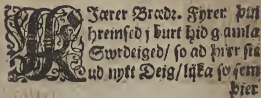 Kiærer Brædr. Fyrer þui
hreinsed j burt hid gamla
Swrdeiged/ so ad þier sieu
ud nytt Deig/ lijka so sem
þier